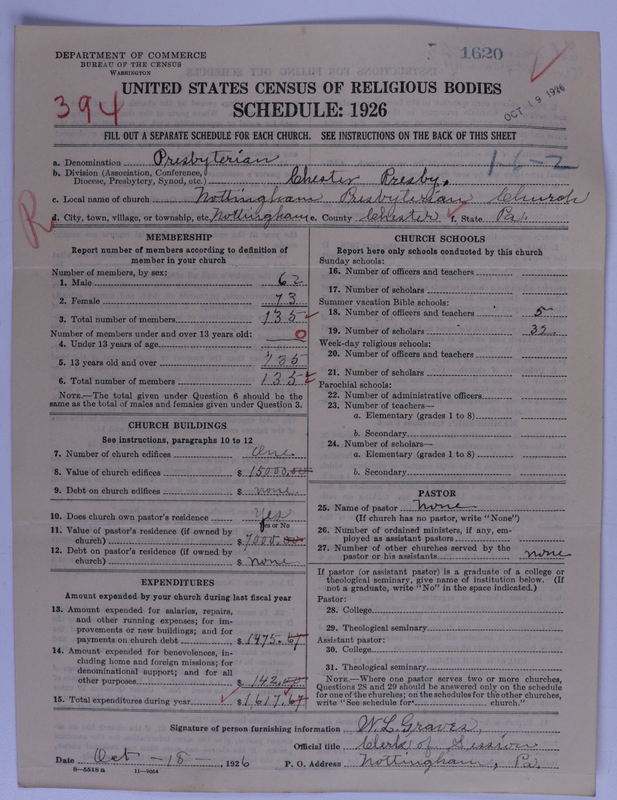 1620
DEPARTMENT OF COMMERCE
BUREAU OF THE CENSUS
WASHINGTON
394
UNITED STATES CENSUS OF RELIGIOUS BODIES
SCHEDULE: 1926
OCT 19 1926
FILL OUT A SEPARATE SCHEDULE FOR EACH CHURCH. SEE INSTRUCTIONS ON THE BACK OF THIS SHEET
a. Denomination Presbyterian
1-6-2
b. Division (Association, Conference, Diocese, Presbytery, Synod, etc.) Chester Presby.
c. Local name of church Nottingham Presbyterian Church
R
d. City, town, village, or township, etc. Nottingham e. County Chester f. State Pa.
MEMBERSHIP
Report number of members according to definition of
member in your church
Number of members, by sex:
1. Male 62
2. Female 73
3. Total number of members 135
Number of members under and over 13 years old:
4. Under 13 years of age 0
5. 13 years old and over 135
6. Total number of members 135
NOTE.—The total given under Question 6 should be
same as the total of males and females given under Question 3.
CHURCH BUILDINGS
See instructions, paragraphs 10 to 12
7. Number of church edifices One
8. Value of church edifices $ 15000.00
9. Debt on church edifices $ none
10. Does church own pastor's residence Yes
Yes or No
11. Value of pastor's residence (if owned by
church) $ 7000.00
12. Debt on pastor's residence (if owned by
church) $ none
EXPENDITURES
Amount expended by your church during last fiscal year
13. Amount expended for salaries, repairs,
and other running expenses; for im-
provements or new buildings; and for
payments on church debt $ 1475.67
14. Amount expended for benevolences, in-
cluding home and foreign missions; for
denominational support; and for all
other purposes $ 142.00
15. Total expenditures during year $ 1617.67
CHURCH SCHOOLS
Report here only schools conducted by this church
Sunday schools:
16. Number of officers and teachers
17. Number of scholars
Summer vacation Bible schools:
18. Number of officers and teachers 5
19. Number of scholars 32
Week-day religious schools:
20. Number of officers and teachers
21. Number of scholars
Parochial schools:
22. Number of administrative officers
23. Number of teachers—
a. Elementary (grades 1 to 8)
b. Secondary
24. Number of scholars—
a. Elementary (grades 1 to 8)
b. Secondary
PASTOR
25. Name of pastor None
(If church has no pastor, write "None")
26. Number of ordained ministers, if any, em-
ployed as assistant pastors
27. Number of other churches served by the
pastor or his assistants none
If pastor (or assistant pastor) is a graduate of a college or
theological seminary, give name of institution below. (If
not a graduate, write "No" in the space indicated.)
Pastor:
28. College
29. Theological seminary
Assistant pastor:
30. College
31. Theological seminary
NOTE.—Where one pastor serves two or more churches,
Questions 28 and 29 should be answered only on the schedule
for one of the churches; on the schedules for the other churches,
write "See schedule for church."
Signature of person furnishing information W. L. Graves,
Official title Clerk of Session
Date Oct - 18 -, 1926 P. O. Address Nottingham, Pa.
8-5518 a 11-9264